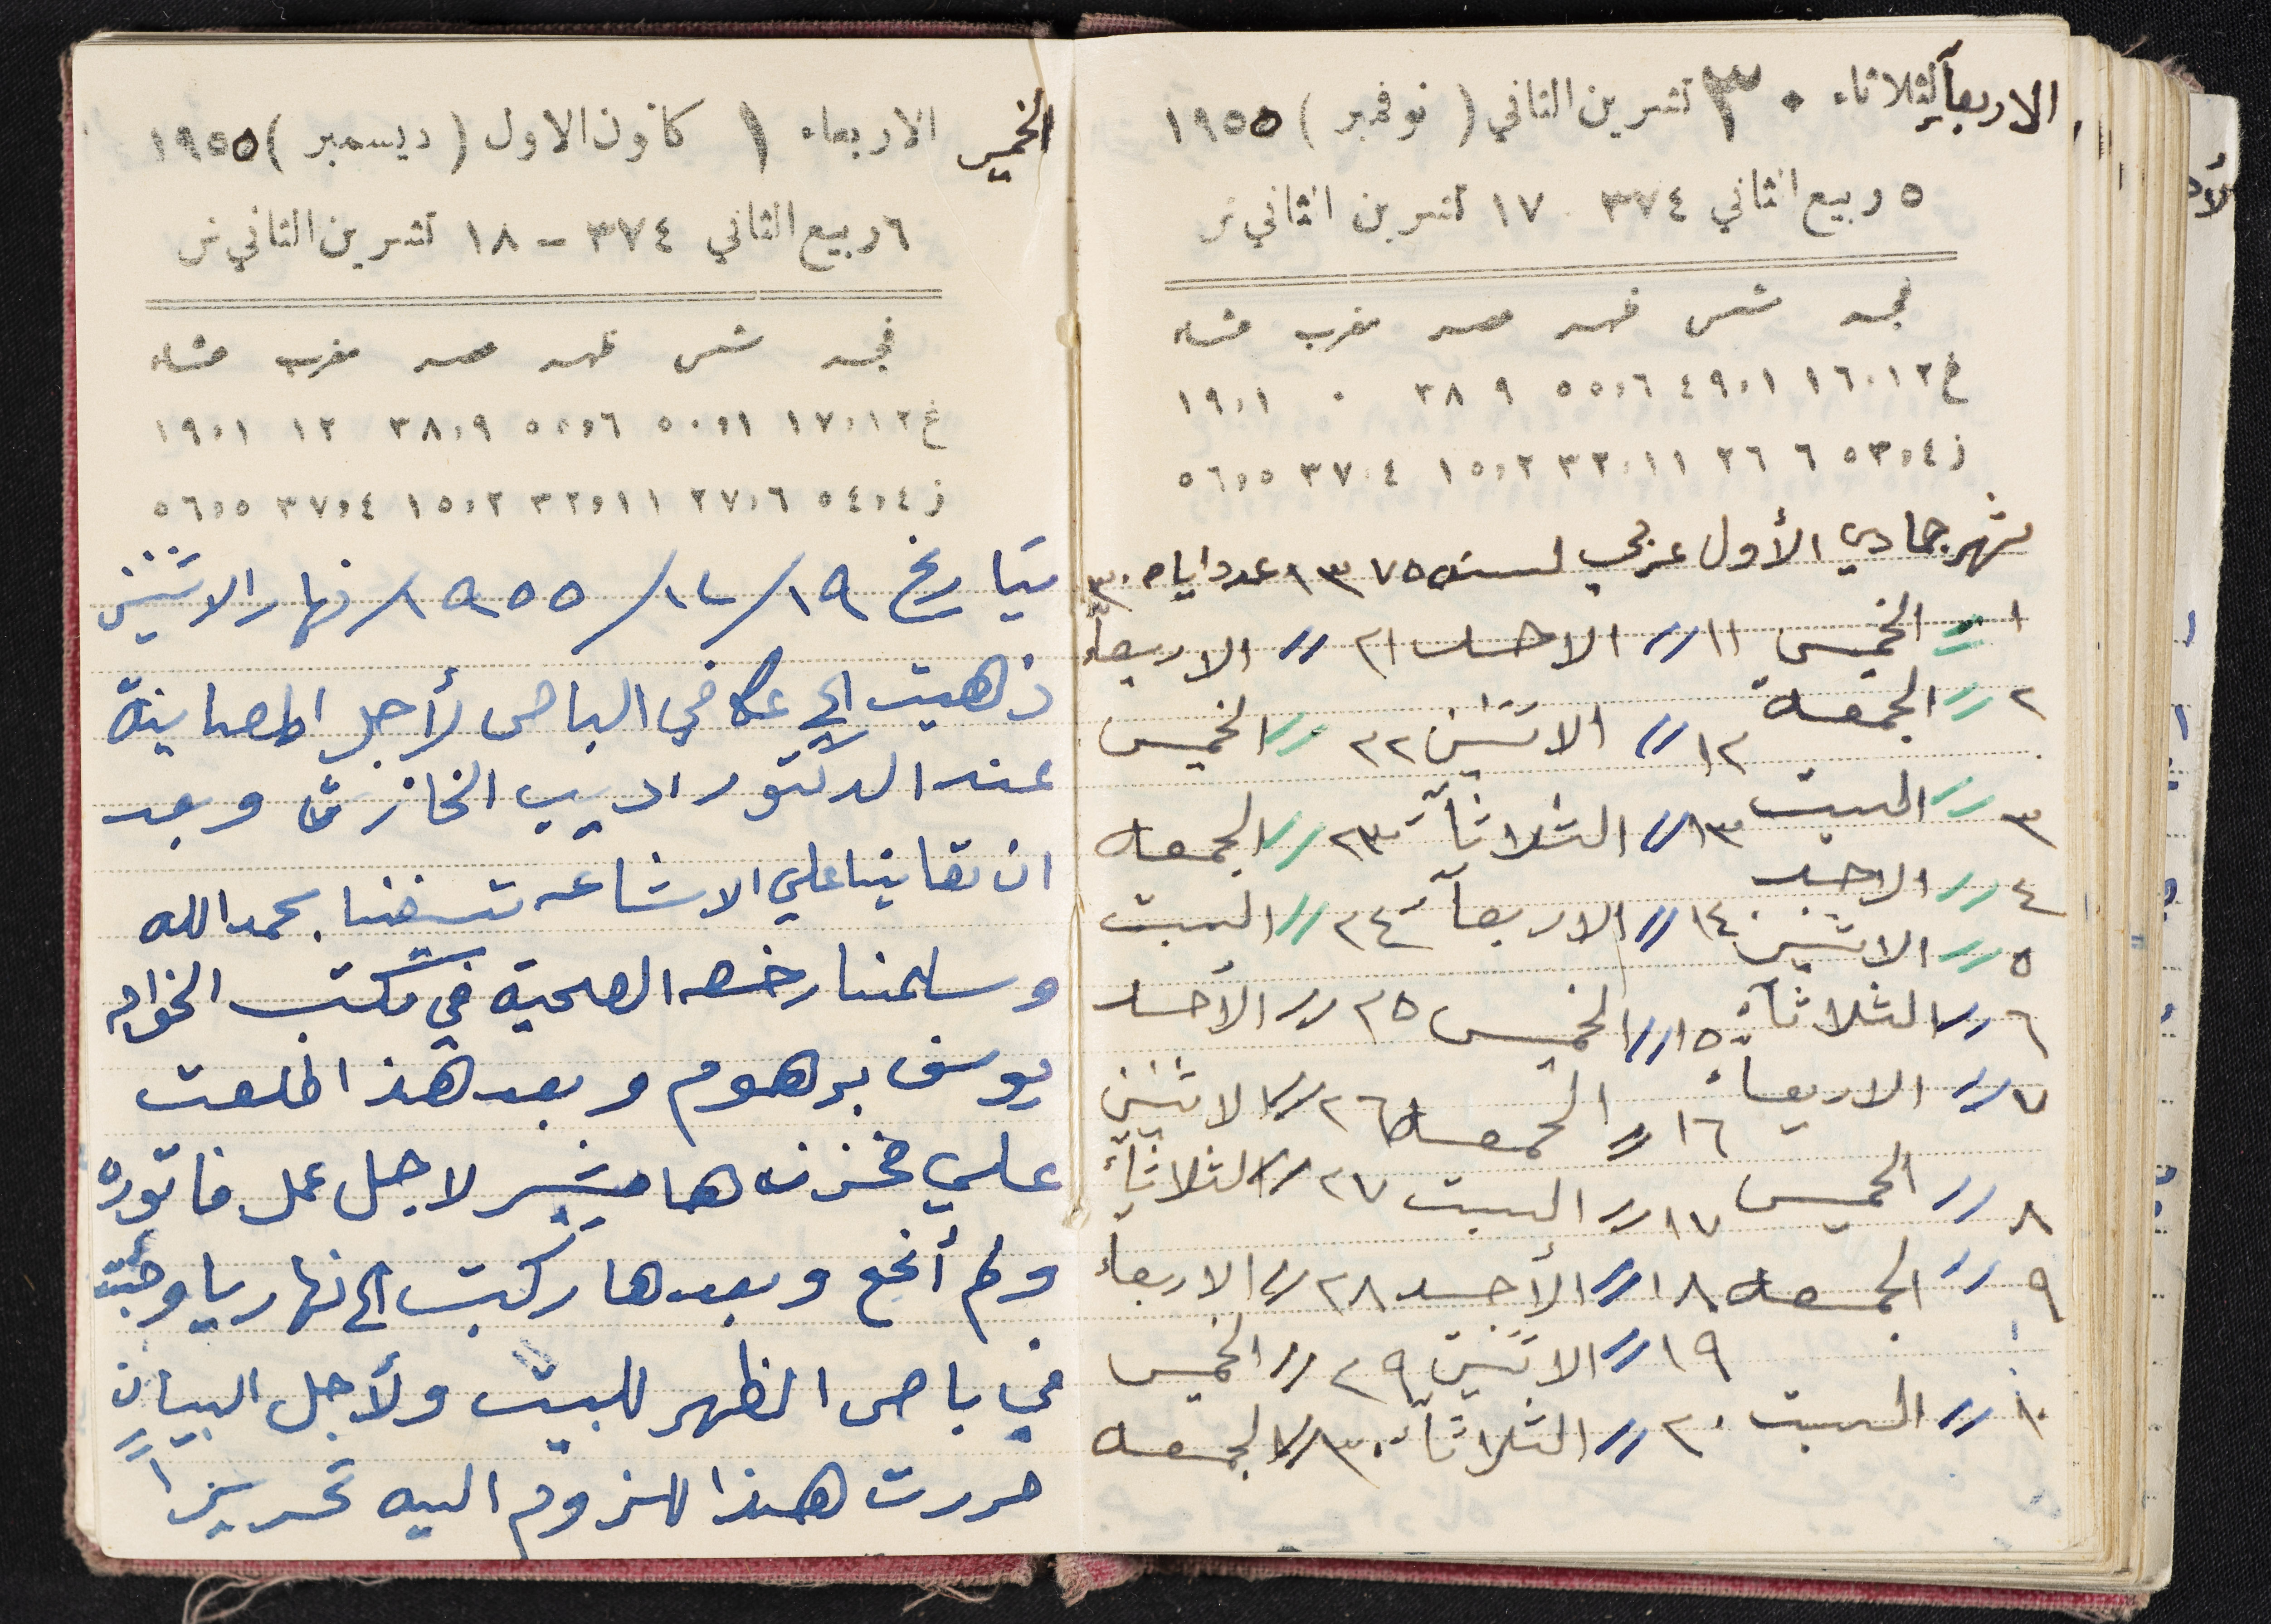 الاربعآ الثلاثاء ٣٠ تشرين الثاني ( نوفمبر ) ١٩٥٥
٥ ربيع الثاني ٣٧٤ ١٧ تشرين الثاني ش
فجر شمس ظهر عصر مغرب عشاء
غ ١٦،١٢ ٤٩،١ ٥٥،٦ ٣٨ ٩ ٠ ١٩،١
ز ٥٣،٤ ٢٦ ٦ ٣٢،١١ ١٥،٢ ٣٧،٤ ٥٦،٥
شهر جمادي الأول عربي لسنه ١٣٧٥ عدد ايام ٣٠
١ // الخميس ١١ // الاحد ٢١ // الاربعآ
٢ // الجمعة ١٢ // الاثنين ٢٢ // الخميس
٣ // السبت ١٣ // الثلاثآء ٢٣ // الجمعه
٤ // الاحد ١٤ // الاربعآء ٢٤ // السبت
٥ // الاثنين
٦ // الثلاثآء ١٥ // الخميس ٢٥ // الأحد
٧ // الاربعاء ١٦ // الجمعه ٢٦ // الاثنين
٨ // الخميس ١٧ // السبت ٢٧ // الثلاثآء
٩ // الجمعه ١٨ // الأحد ٢٨ // الاربعاء
١٩ // الاثنين ٢٩ // الخميس
١٠ // السبت ٢٠ // الثلاثآء ٣٠ // الجمعه
الخميس الاربعاء ١ كانون الاول ( ديسمبر ) ١٩٥٥
٦ ربيع الثاني ٣٧٤ - ١٨ تشرين الثاني ش
فجر شمس ظهر عصر مغرب عشاء
غ ١٧،١٢ ٥٠،١ ٥٥،٦ ٣٨،٩ ١٢ ١٩،١
ز ٥٤،٤ ٢٧،٦ ٣٢،١١ ١٥،٢ ٣٧،٤ ٥٦،٥
بتاريخ ١٩/١٢/١٩٥٥ نهار الاثنين
ذهبت الى عكا في الباص لأجل المعاينة
عند الدكتور اديب الخازن وبعد
ان تعاينا على الاشاعه بحمد الله
وسلمنا رخصه الصحية في مكتب الخواجه
يوسف برهوم وبعد هذا طلعت
على مخزن هامشبير لاجل عمل فاتوره
ولم أنجع وبعدها ركبت الى نهاريا وجئت
في باص الظهر للبيت ولأجل البيان
حررت هذا للزوم اليه تحريراً